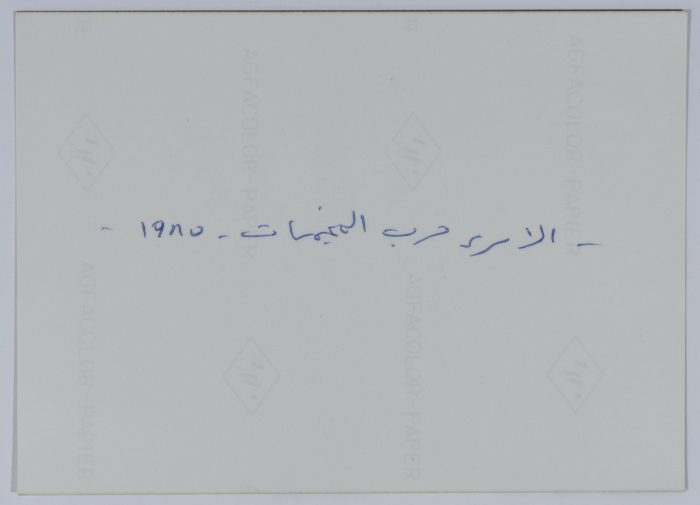 - الاسرى حرب المخيمات - ١٩٨٥ -
AGFACOLOR-PAPIER
AGFACOLOR-PAPIER
AGFACOLOR-PAPIER
AGFACOLOR-PAPIER